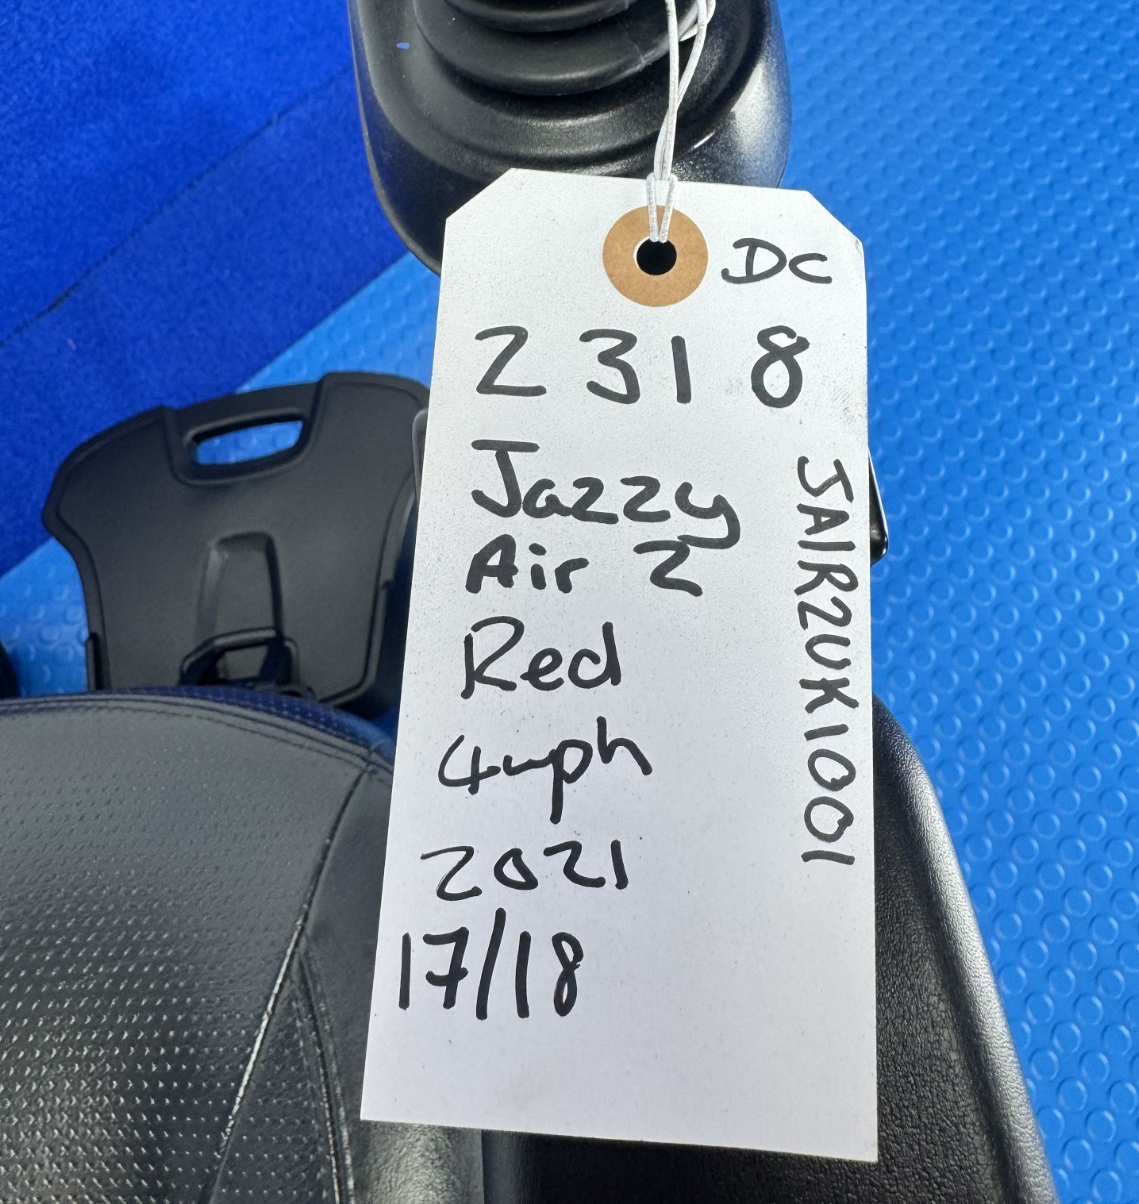 DC
2318
Jazzy
Air 2
Red
4mph
2021
17/18
JAIR2UK1001